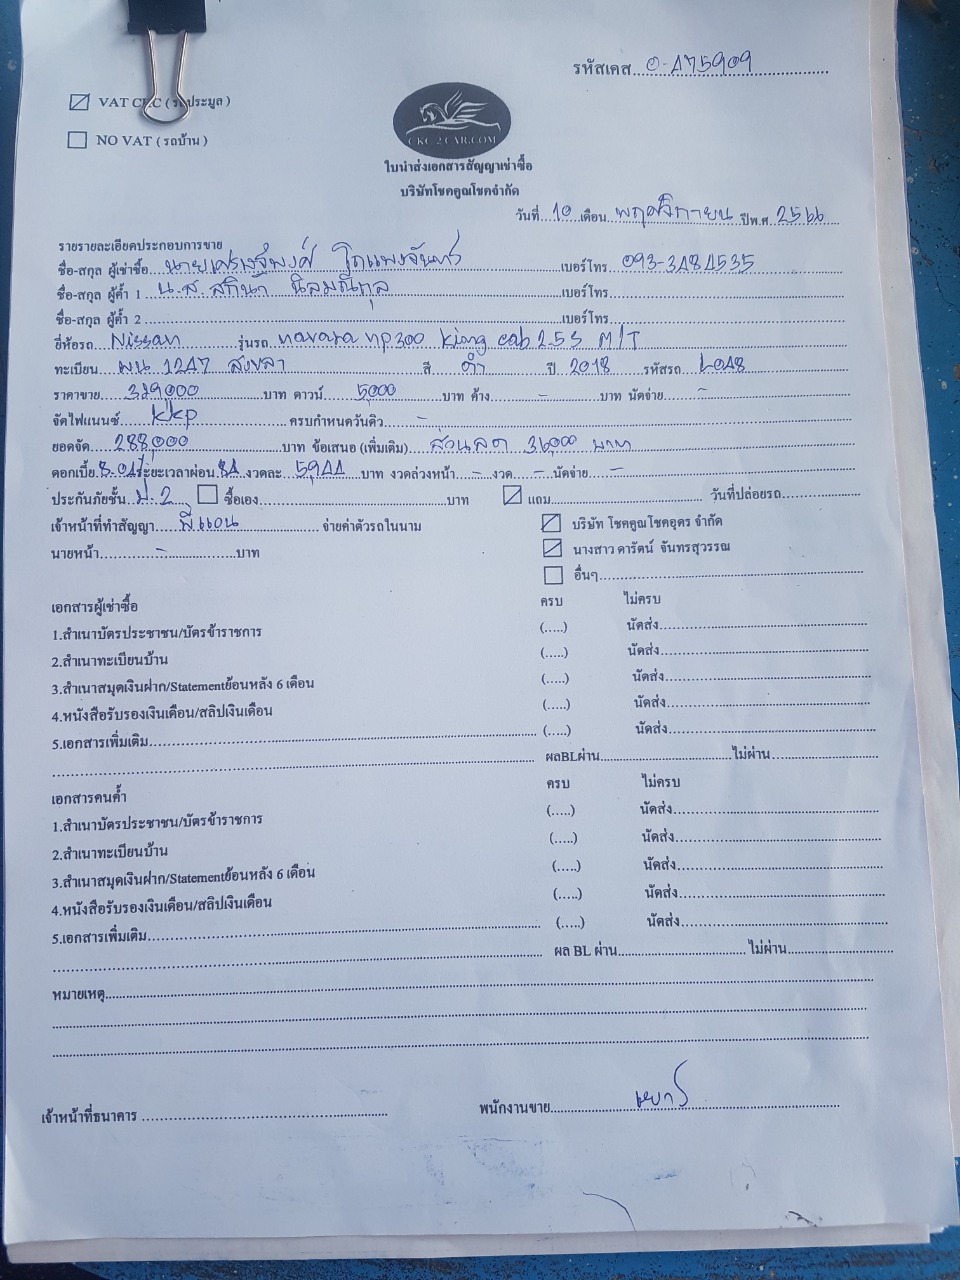 รหัสเคส 0-A75909
VAT CKC ( รถประมูล )
NO VAT ( รถบ้าน )
CKC 2 CAR.COM
ใบนำส่งเอกสารสัญญาเช่าซื้อ
บริษัทโชคคูณโชคจำกัด
วันที่ 10 เดือน พฤศจิกายน ปีพ.ศ. 2566
รายรายละเอียดประกอบการขาย
ชื่อ-สกุล ผู้เช่าซื้อ นายเศรษฐพงศ์ เบอร์โทร 093-3484535
ชื่อ-สกุล ผู้ค้ำ 1 น.ส. สกีนา นิลมณีกุล เบอร์โทร
ชื่อ-สกุล ผู้ค้ำ 2 เบอร์โทร
ยี่ห้อรถ Nissan รุ่นรถ navara np300 king cab 2.5 S M/T
ทะเบียน ผน 1247 สงขลา สี ดำ ปี 2018 รหัสรถ L048
ราคาขาย 329,000 บาท ดาวน์ 5,000 บาท ค้าง - บาท นัดจ่าย -
จัดไฟแนนซ์ kkp ครบกำหนดวันคิว -
ยอดจัด 288,000 บาท ข้อเสนอ (เพิ่มเติม) ส่วนลด 36,000 บาท
ดอกเบี้ย 8.04% ระยะเวลาผ่อน 84 งวดละ 5,944 บาท งวดล่วงหน้า - งวด - นัดจ่าย -
ประกันภัยชั้น ป.2 ซื้อเอง บาท แถม วันที่ปล่อยรถ
เจ้าหน้าที่ทำสัญญา พี่แอน จ่ายค่าตัวรถในนาม บริษัท โชคคูณโชคอุดร จำกัด
นายหน้า - บาท นางสาว ดารัตน์ จันทรสุวรรณ
อื่นๆ
เอกสารผู้เช่าซื้อ ครบ ไม่ครบ
1.สำเนาบัตรประชาชน/บัตรข้าราชการ (.....) นัดส่ง
2.สำเนาทะเบียนบ้าน (.....) นัดส่ง
3.สำเนาสมุดเงินฝาก/Statementย้อนหลัง 6 เดือน (.....) นัดส่ง
4.หนังสือรับรองเงินเดือน/สลิปเงินเดือน (.....) นัดส่ง
5.เอกสารเพิ่มเติม (.....) นัดส่ง
ผลBLผ่าน ไม่ผ่าน
เอกสารคนค้ำ ครบ ไม่ครบ
1.สำเนาบัตรประชาชน/บัตรข้าราชการ (.....) นัดส่ง
2.สำเนาทะเบียนบ้าน (.....) นัดส่ง
3.สำเนาสมุดเงินฝาก/Statementย้อนหลัง 6 เดือน (.....) นัดส่ง
4.หนังสือรับรองเงินเดือน/สลิปเงินเดือน (.....) นัดส่ง
5.เอกสารเพิ่มเติม (.....) นัดส่ง
ผล BL ผ่าน ไม่ผ่าน
หมายเหตุ
เจ้าหน้าที่ธนาคาร พนักงานขาย